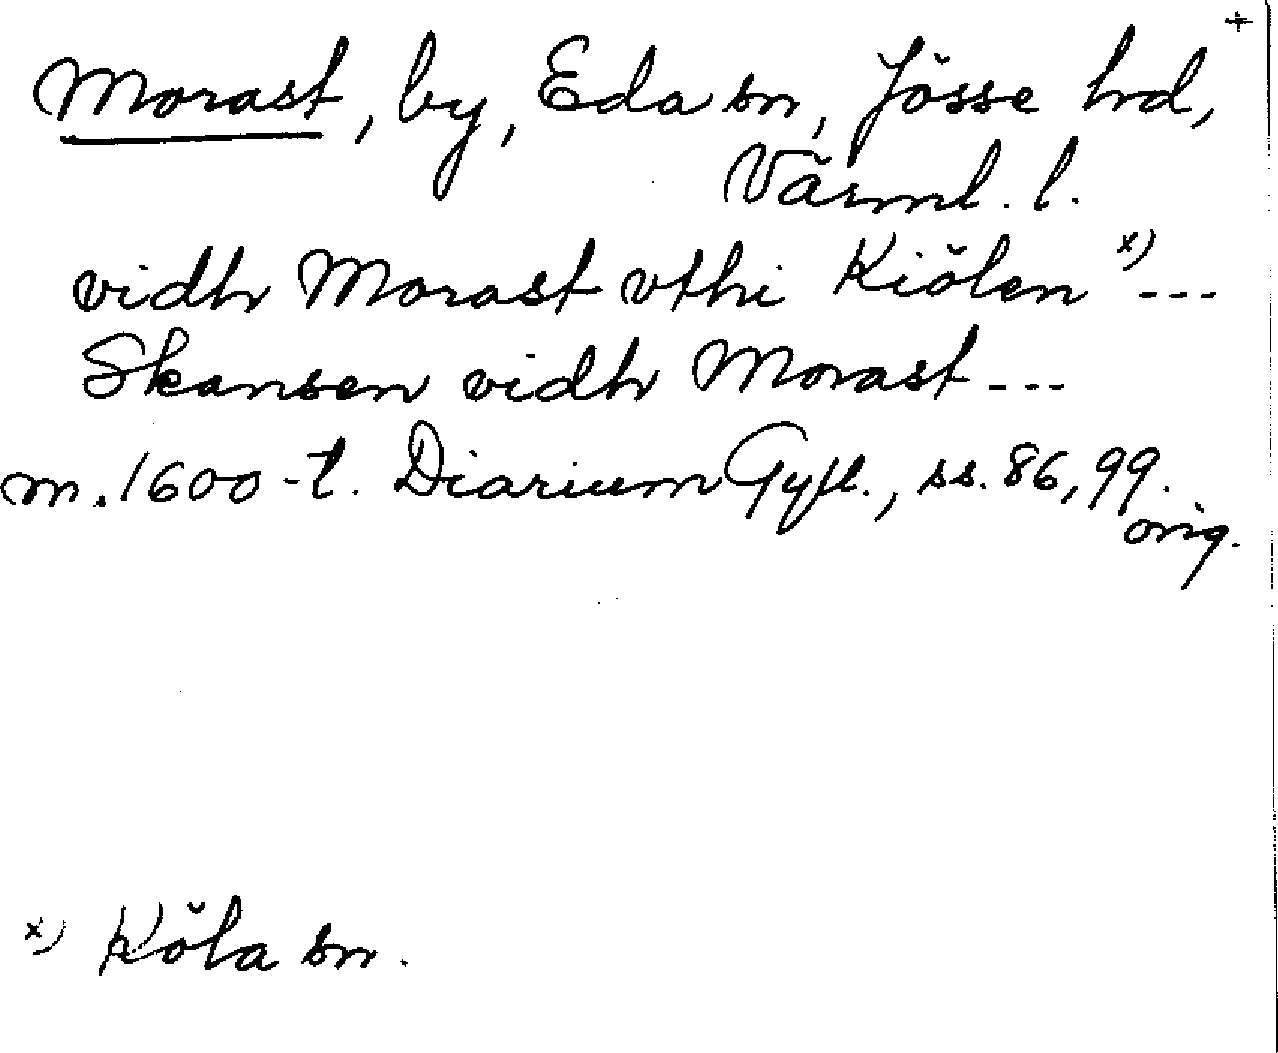 +
Morast, by, Eda sn, Jösse hrd,
Värml. l.
vidh Morast vthi Kiölen x) ---
Skansen vidh Morast ---
m. 1600-t. Diarium Gyll., ss. 86, 99.
orig.
x) Köla sn.